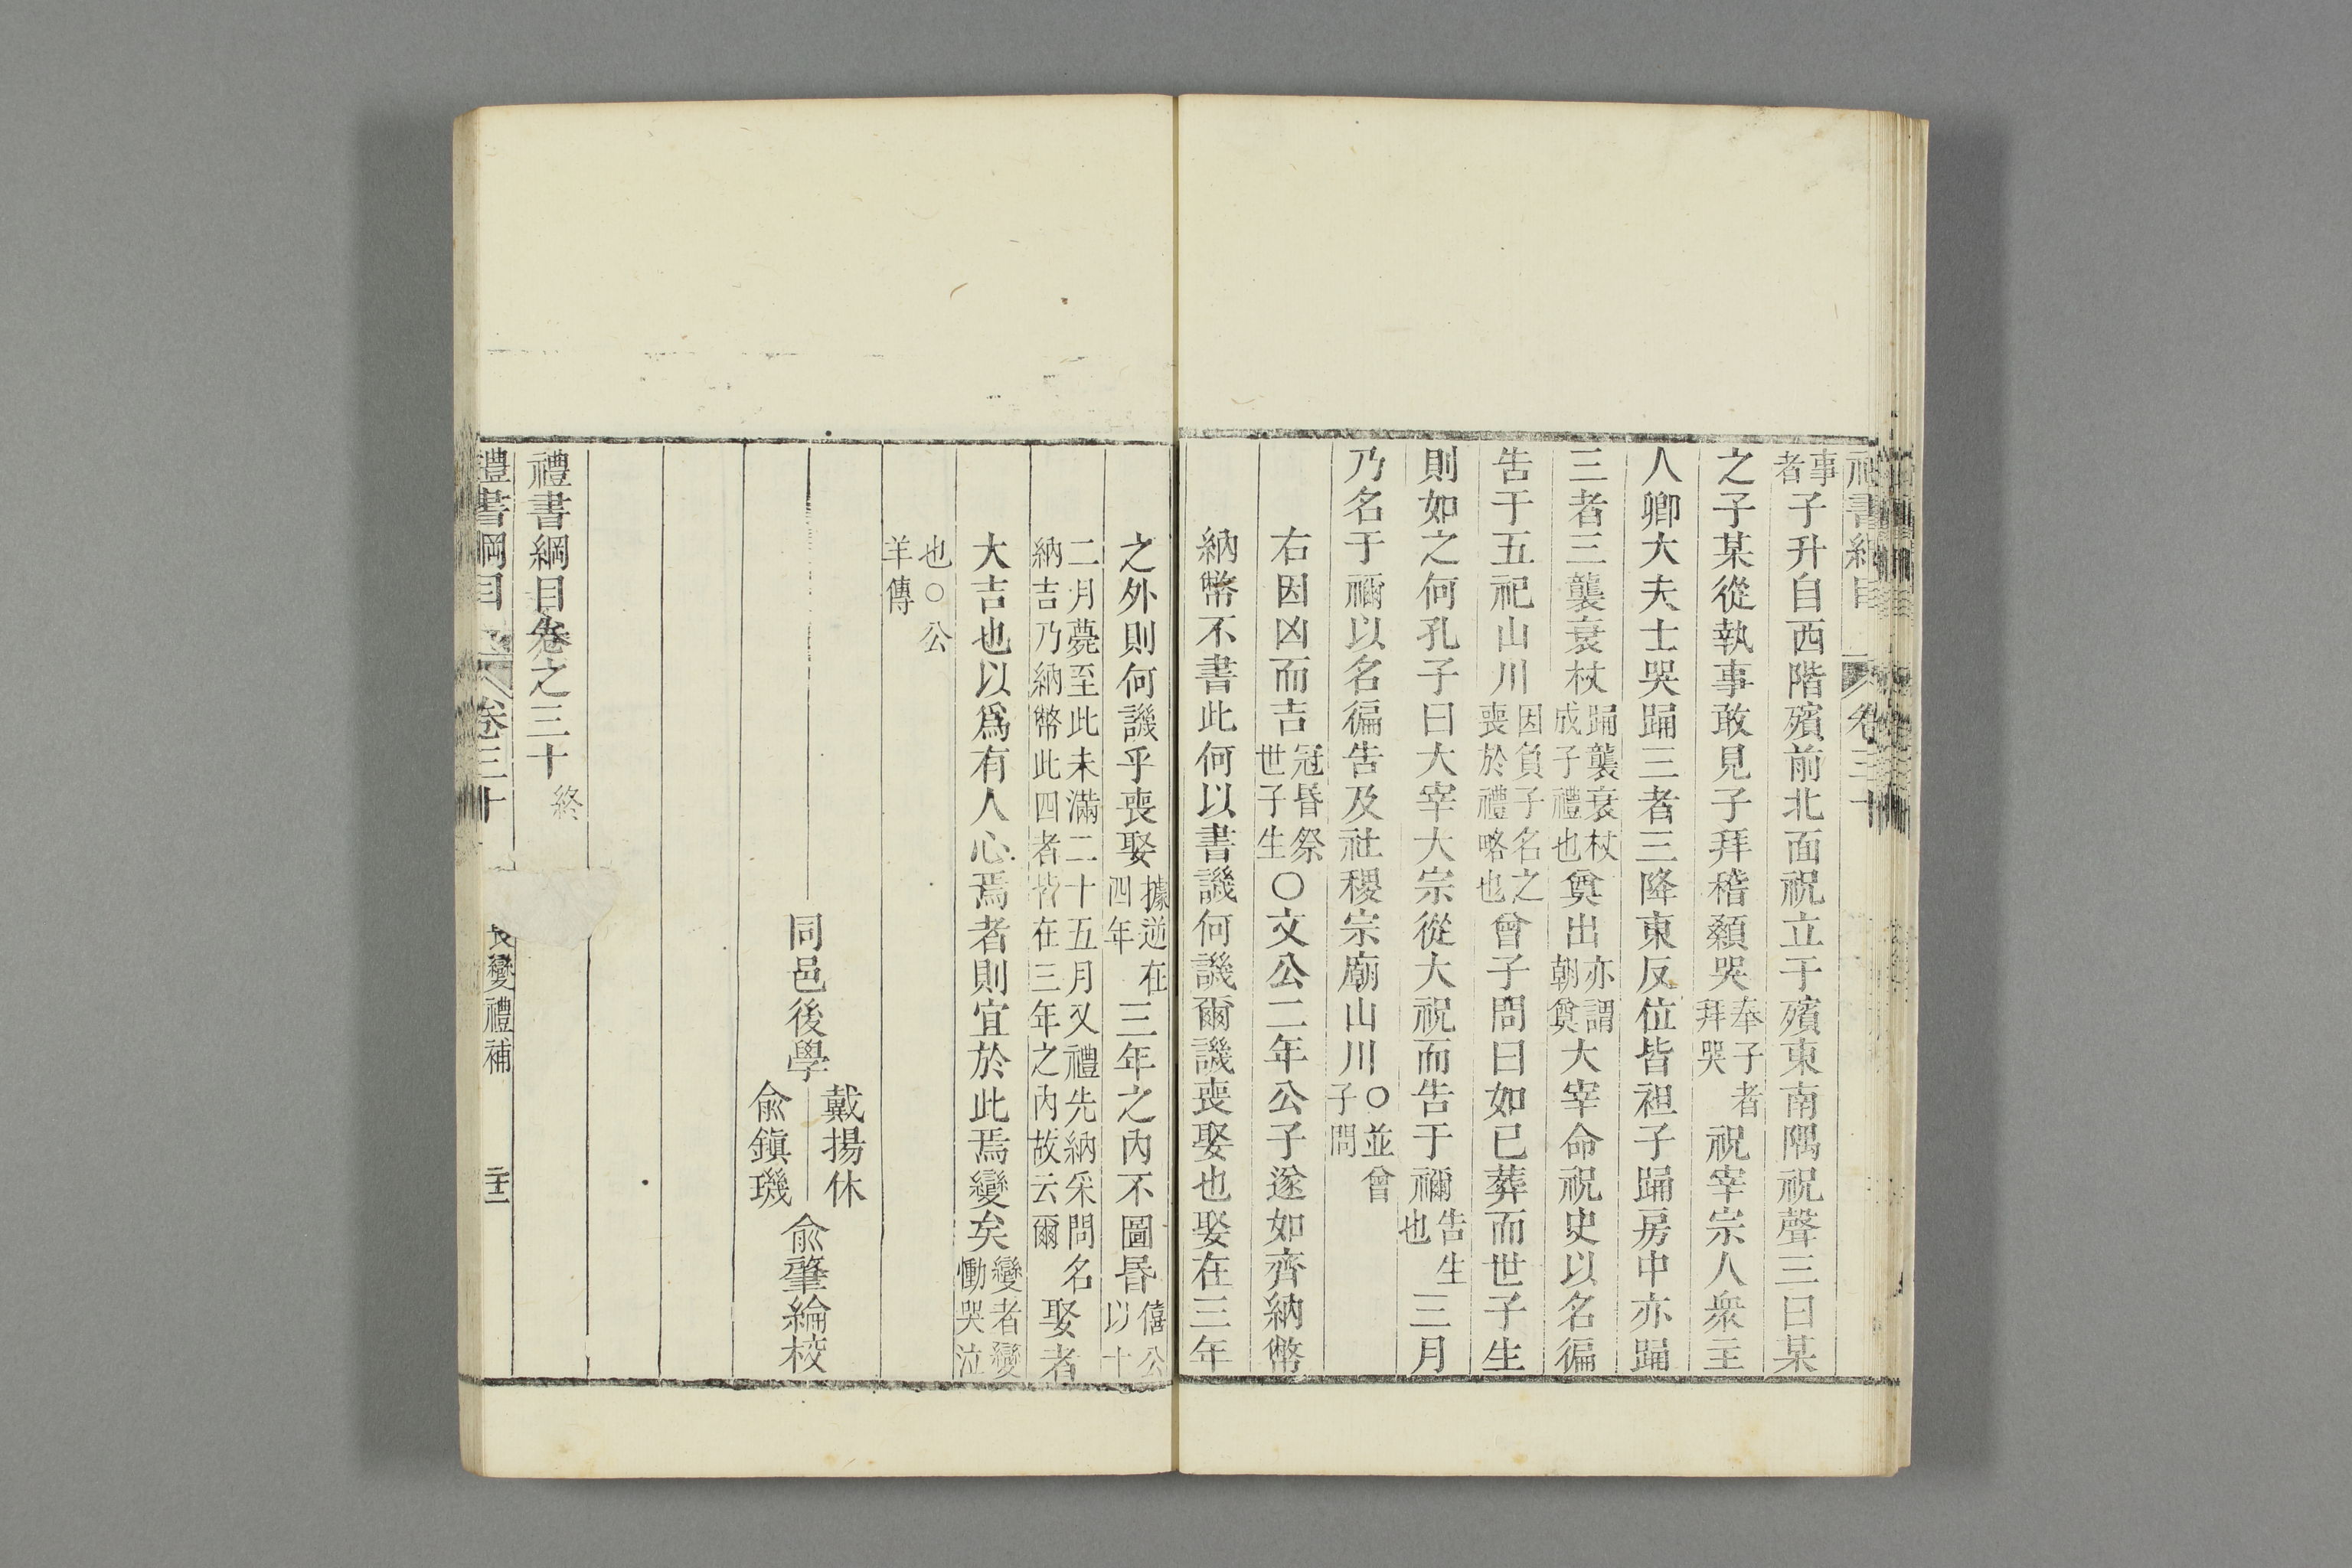 事者子升自西階殯前北面祝立于殯東南隅祝聲三曰某
之子某從執事敢見子拜稽顙哭奉子者拜哭祝宰宗人衆主
人卿大夫士哭踊三者三降東反位皆袒子踊房中亦踊
三者三襲衰杖踊襲衰杖成子禮也奠出亦謂朝奠大宰命祝史以名徧
告于五祀山川因負子名之喪於禮略也曾子問曰如已葬而世子生
則如之何孔子曰大宰大宗從大祝而告于禰告生也三月
乃名于禰以名徧告及社稷宗廟山川○並曾子問
右因凶而吉冠昏祭世子生○文公二年公子遂如齊納幣
納幣不書此何以書譏何譏爾譏喪娶也娶在三年
之外則何譏乎喪娶據逆在四年三年之內不圖昏僖公以十
二月薨至此未滿二十五月又禮先納采問名納吉乃納幣此四者皆在三年之內故云爾娶者
大吉也以爲有人心焉者則宜於此焉變矣變者變慟哭泣
也○公羊傳
同邑後學戴揚休俞鎮璣俞肇綸校
禮書綱目卷之三十終
禮書綱目卷三十
變禮補